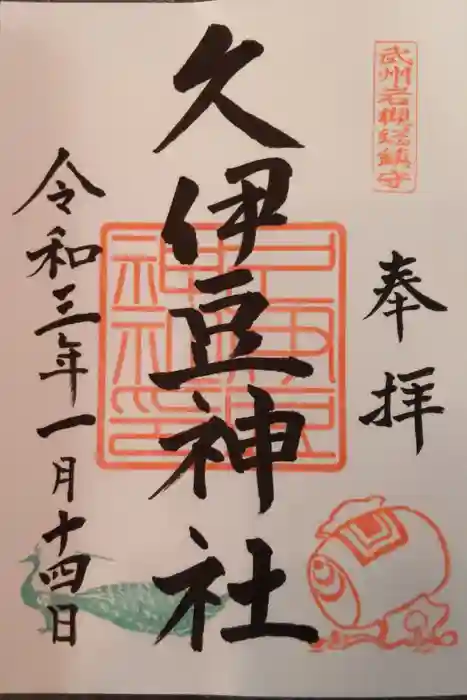 武州岩槻総鎮守
奉拝
久伊豆神社
久伊豆神社印
令和三年一月十四日